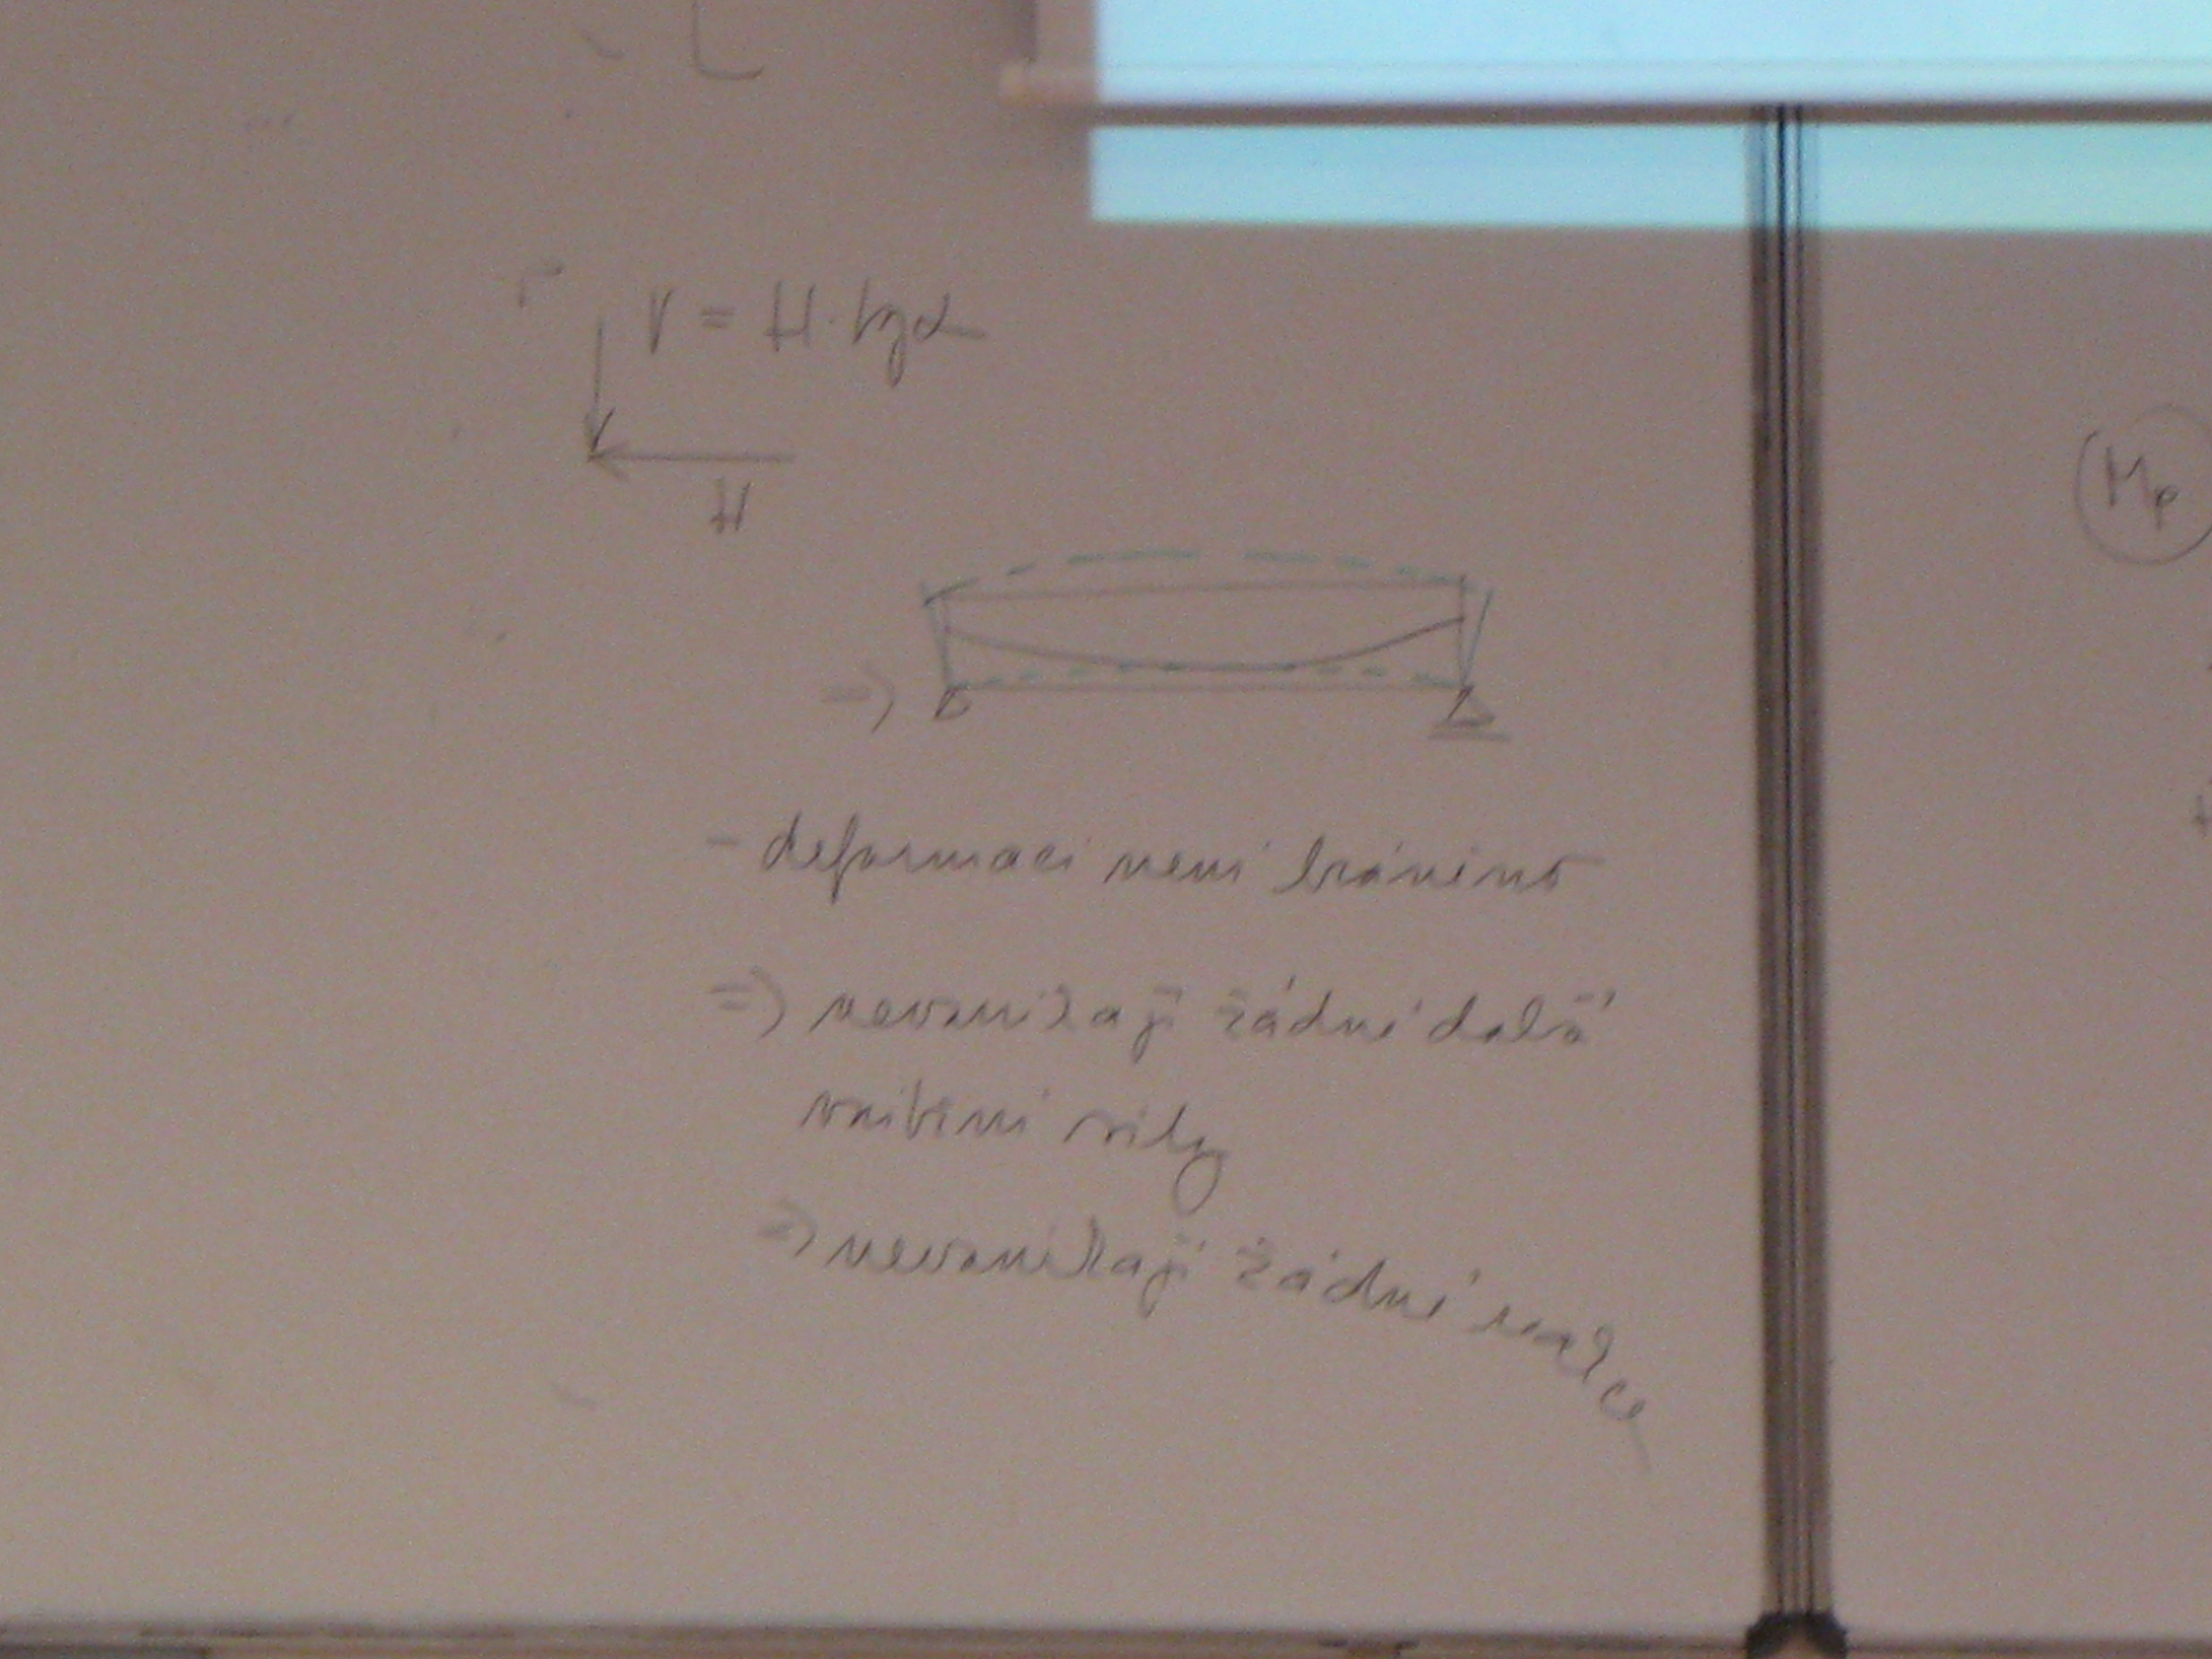 V = H·tgα
H
Mp
- deformaci není bráněno
=) nevznikají žádné další
vnitřní síly
=) nevznikají žádné reakce